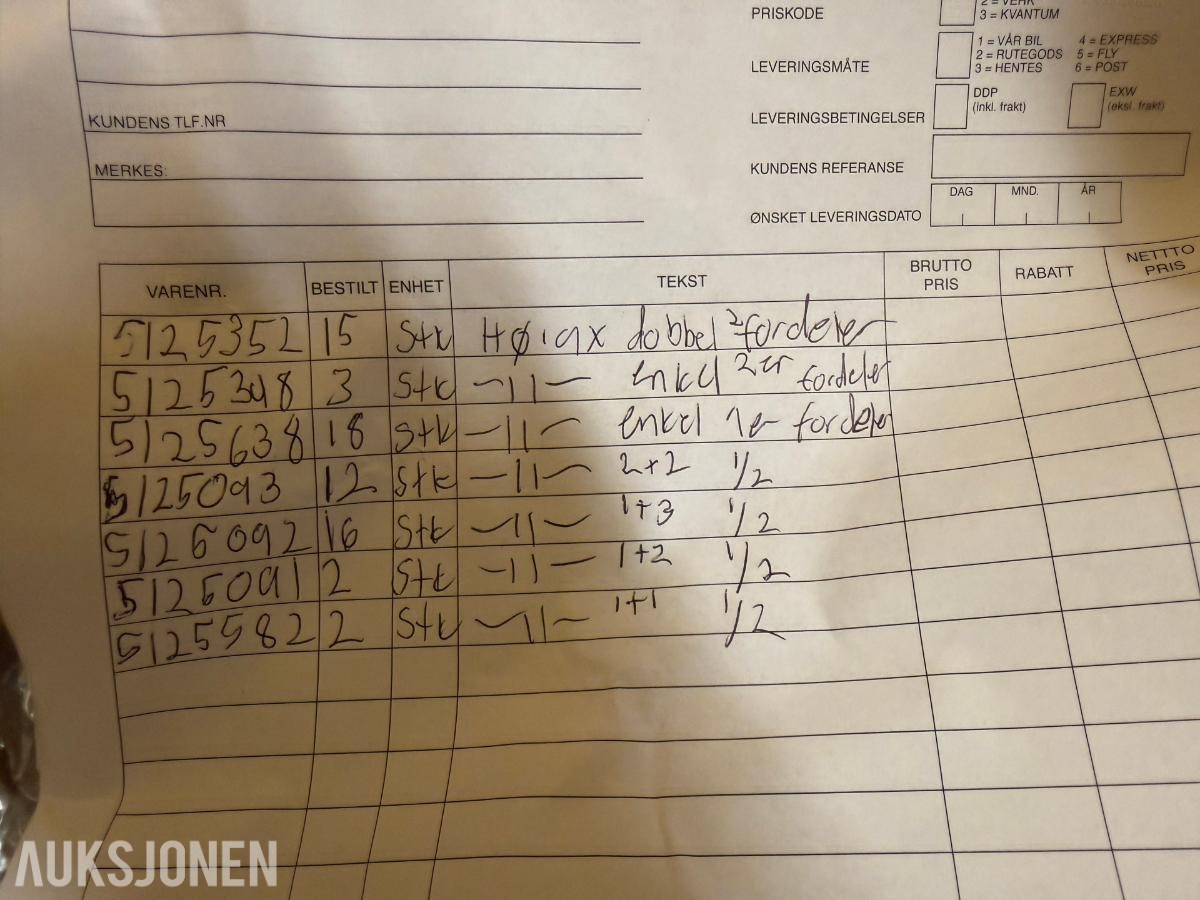 PRISKODE
3 = KVANTUM
LEVERINGSMÅTE
1 = VÅR BIL 4 = EXPRESS
2 = RUTEGODS 5 = FLY
3 = HENTES 6 = POST
KUNDENS TLF.NR
LEVERINGSBETINGELSER DDP (inkl. frakt) EXW (eksl. frakt)
MERKES:
KUNDENS REFERANSE
ØNSKET LEVERINGSDATO DAG MND. ÅR
VARENR. BESTILT ENHET TEKST BRUTTO PRIS RABATT NETTTO PRIS
5125352 15 Stk Høiax dobbel 2 fordeler
5125348 3 Stk -11- enkel 2er fordeler
5125638 18 Stk -11- enkel 1er fordeler
5125093 12 Stk -11- 2+2 1/2
5125092 16 Stk -11- 1+3 1/2
5125091 2 Stk -11- 1+2 1/2
5125582 2 Stk -11- 1+1 1/2
AUKSJONEN